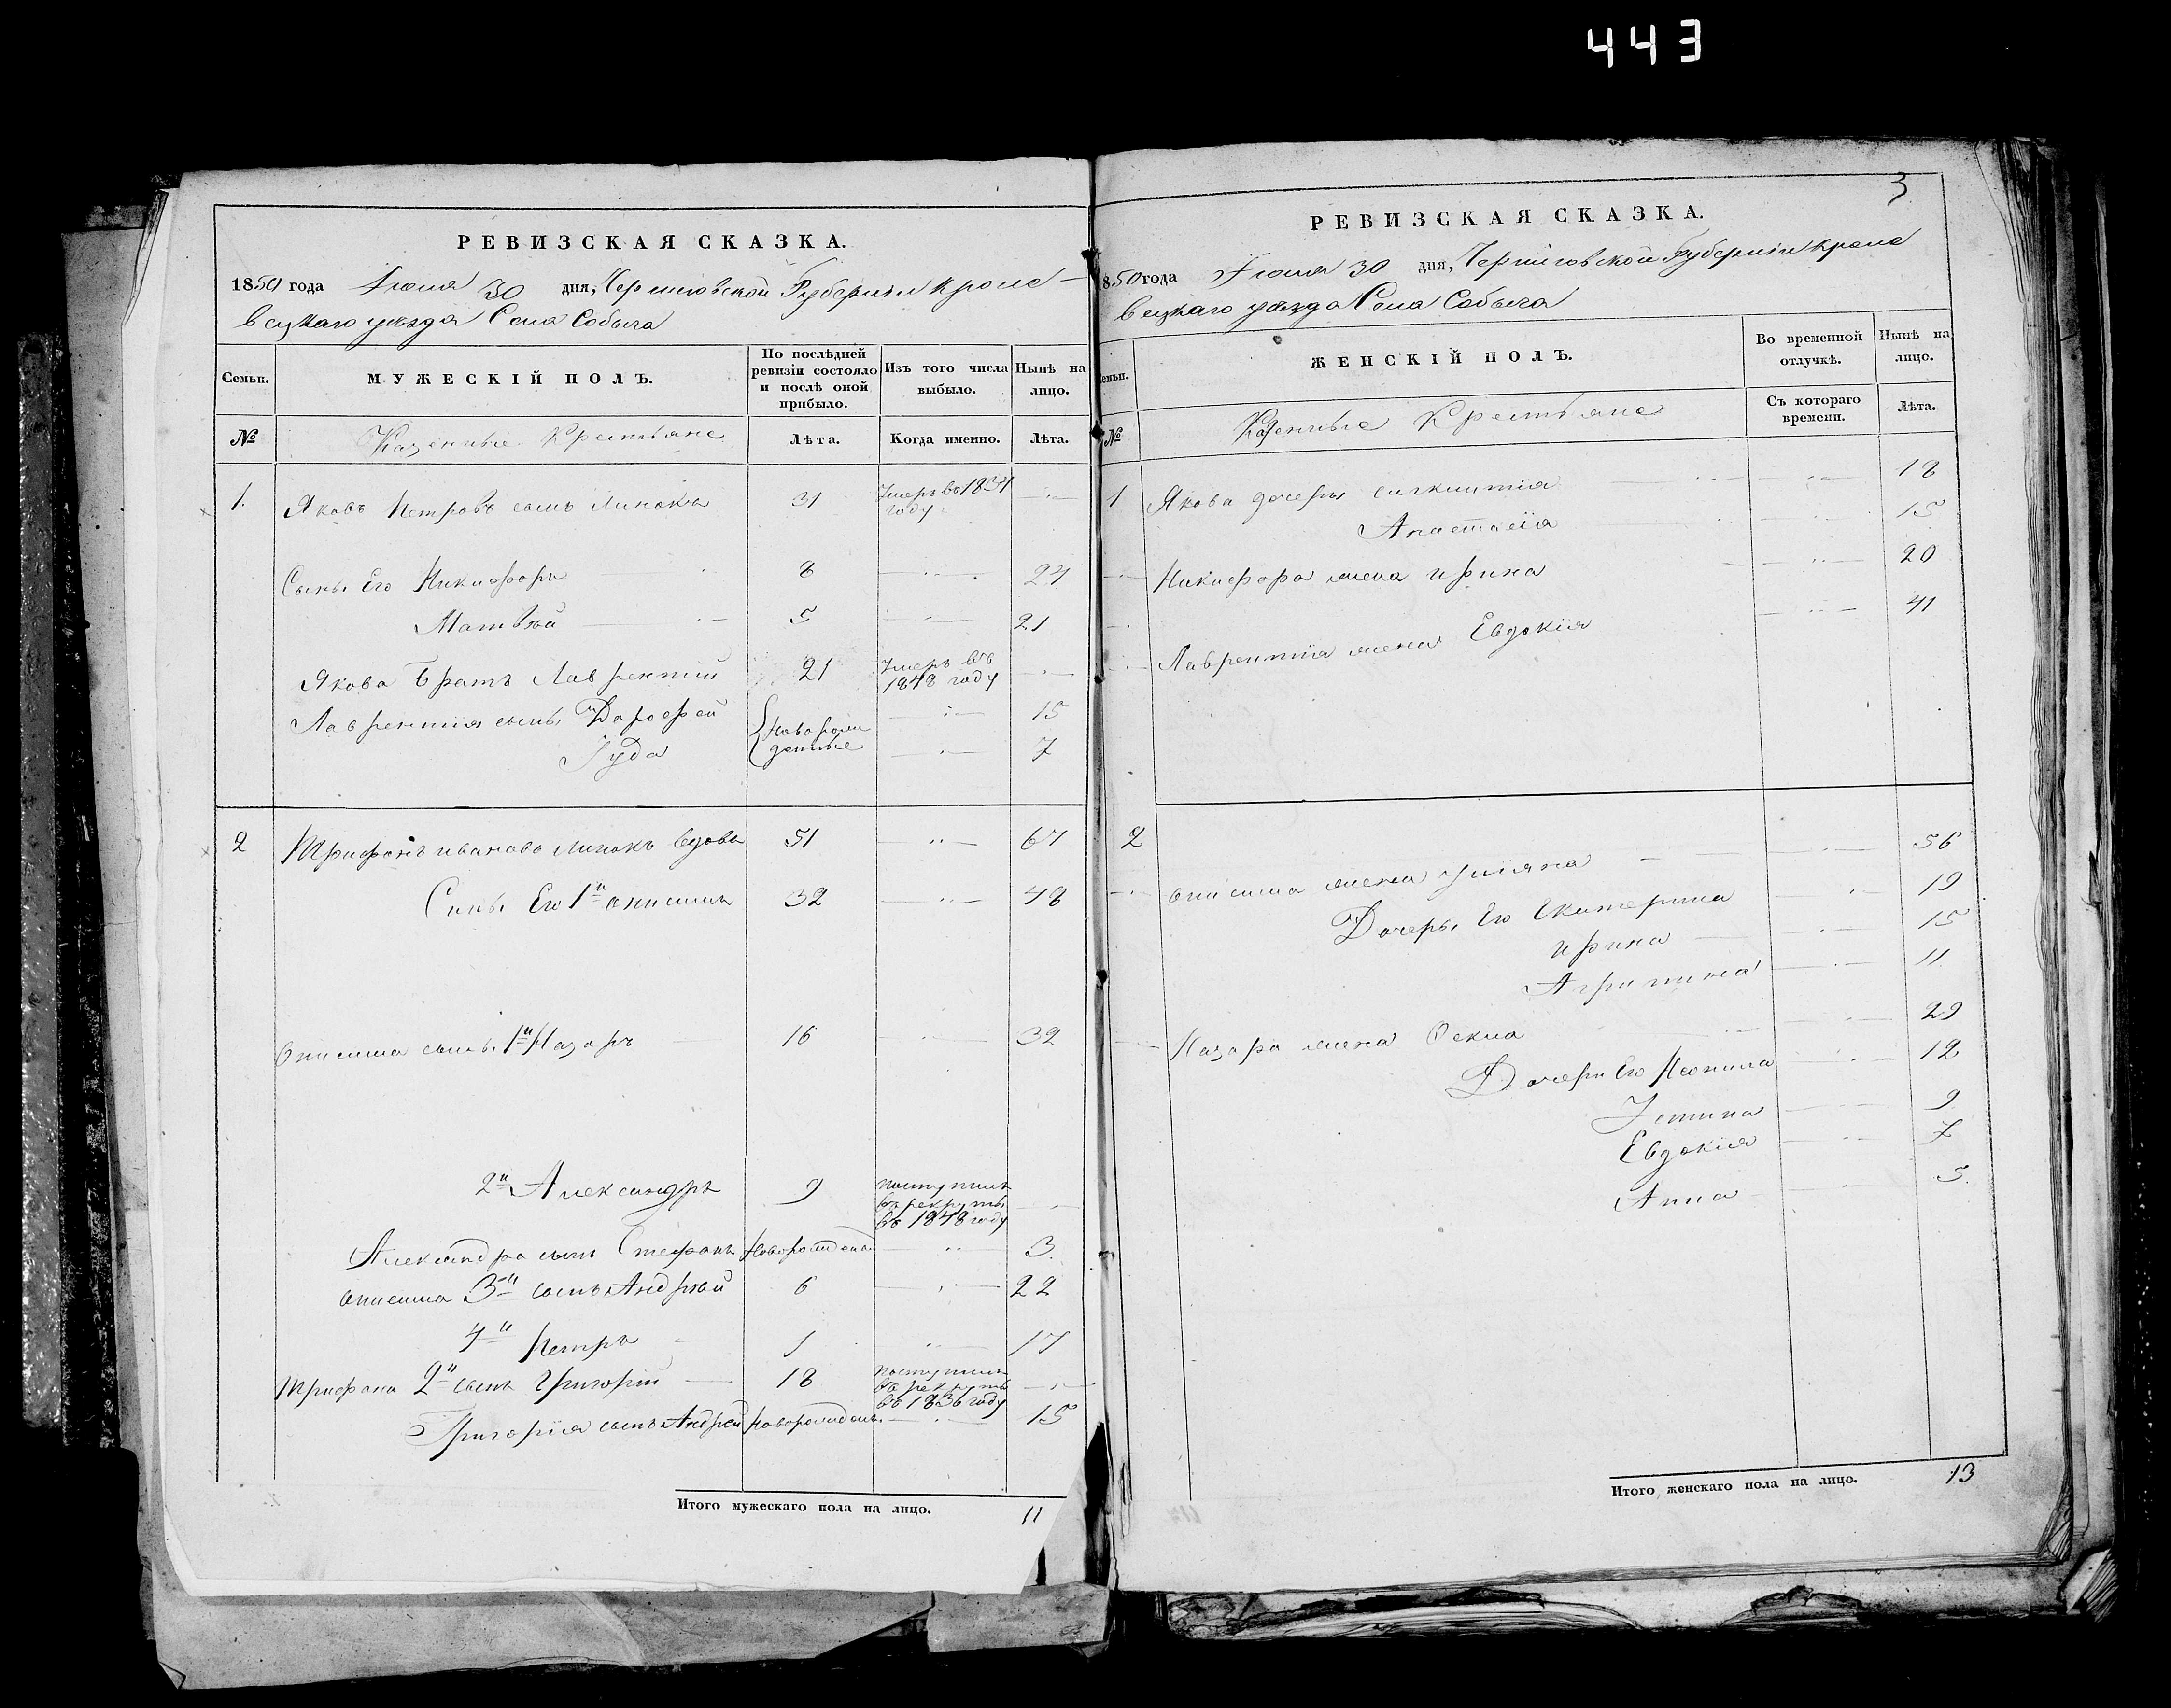 443
РЕВИЗСКАЯ СКАЗКА.
1850 года Июля 30 дня, Черниговской Губернiи Кроле-
вецкаго уѣзда Села Собыча
Семьи.
МУЖЕСКІЙ ПОЛЪ.
По послѣдней ревизіи состояло и послѣ оной прибыло.
Изъ того числа выбыло.
Нынѣ на лицо.
№
Казенные Крестьяне
Лѣта.
Когда именно.
Лѣта.
1. Яковъ Петровъ сынъ Линокъ 31 Умеръ въ 1834 году
Сынъ Его Никифоръ 8 24
Матвѣй 5 21
Якова Братъ Лаврентий 21 Умеръ въ 1848 году
Лаврентія сынъ Дорофей 15
Іуда 7
Новорожденные
2 Трифонъ Иванова Линокъ вдовъ 51 67
Сынъ Его 1й Онисимъ 32 48
Онисима сынъ 1й Назаръ 16 32
2й Александръ 9 поступилъ въ рекруты въ 1848 году
Александра сынъ Стефанъ Новорожден 3
Онисима 3й сынъ Андрѣй 6 22
4й Петръ 1 17
Трифона 2й сынъ Григорій 18 поступилъ въ рекруты въ 1836 году
Григорія сынъ Андрей Новорожден. 15
Итого мужескаго пола на лицо. 11
3
РЕВИЗСКАЯ СКАЗКА.
1850 года Июля 30 дня, Черниговской Губерніи Кроле
вецкаго уѣзда Села Собыча
Семьи.
ЖЕНСКІЙ ПОЛЪ.
Во временной отлучкѣ.
Нынѣ на лицо.
№
Казенные Крестьяне
Съ котораго времени.
Лѣта.
1 Якова дочеры 18
Анастасія 15
Никифора жена Ирина 20
Лаврентія жена Евдокія 41
2
Онисима жена Уліяна 56
Дочеры Его Екатерина 19
Ирина 15
Агрипина 11
Назара жена Фекла 29
Дочери Его Неонила 12
Устина 9
Евдокія 7
Анна 5.
Итого женскаго пола на лицо. 13